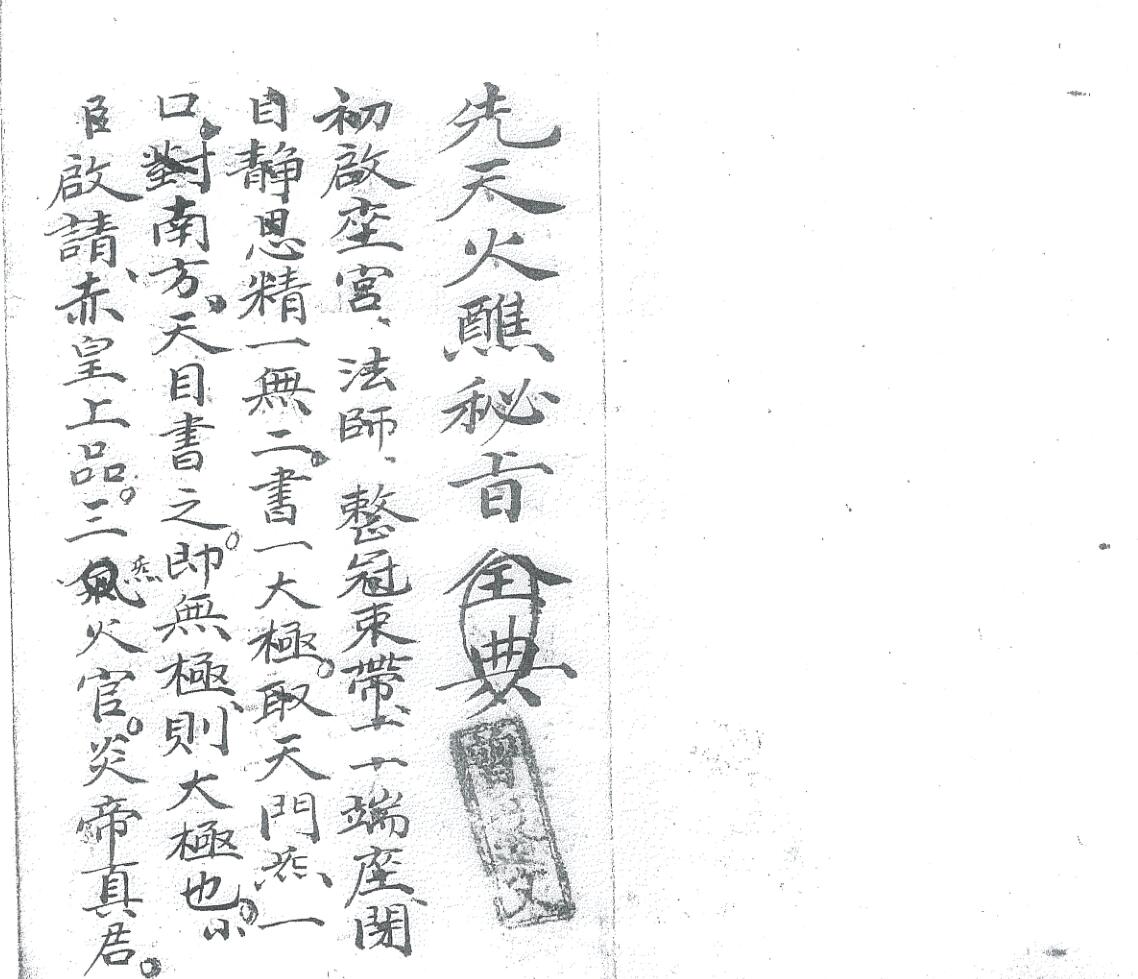 先天火醮秘旨全典
初啟座宮、法師、整冠束帶、端座、閉
目静思精一無二書一大極。取天門炁一
口。對南方。天目書之。即無極則大極也。小
臣啟請、赤皇上品。三炁火官。炎帝真君。